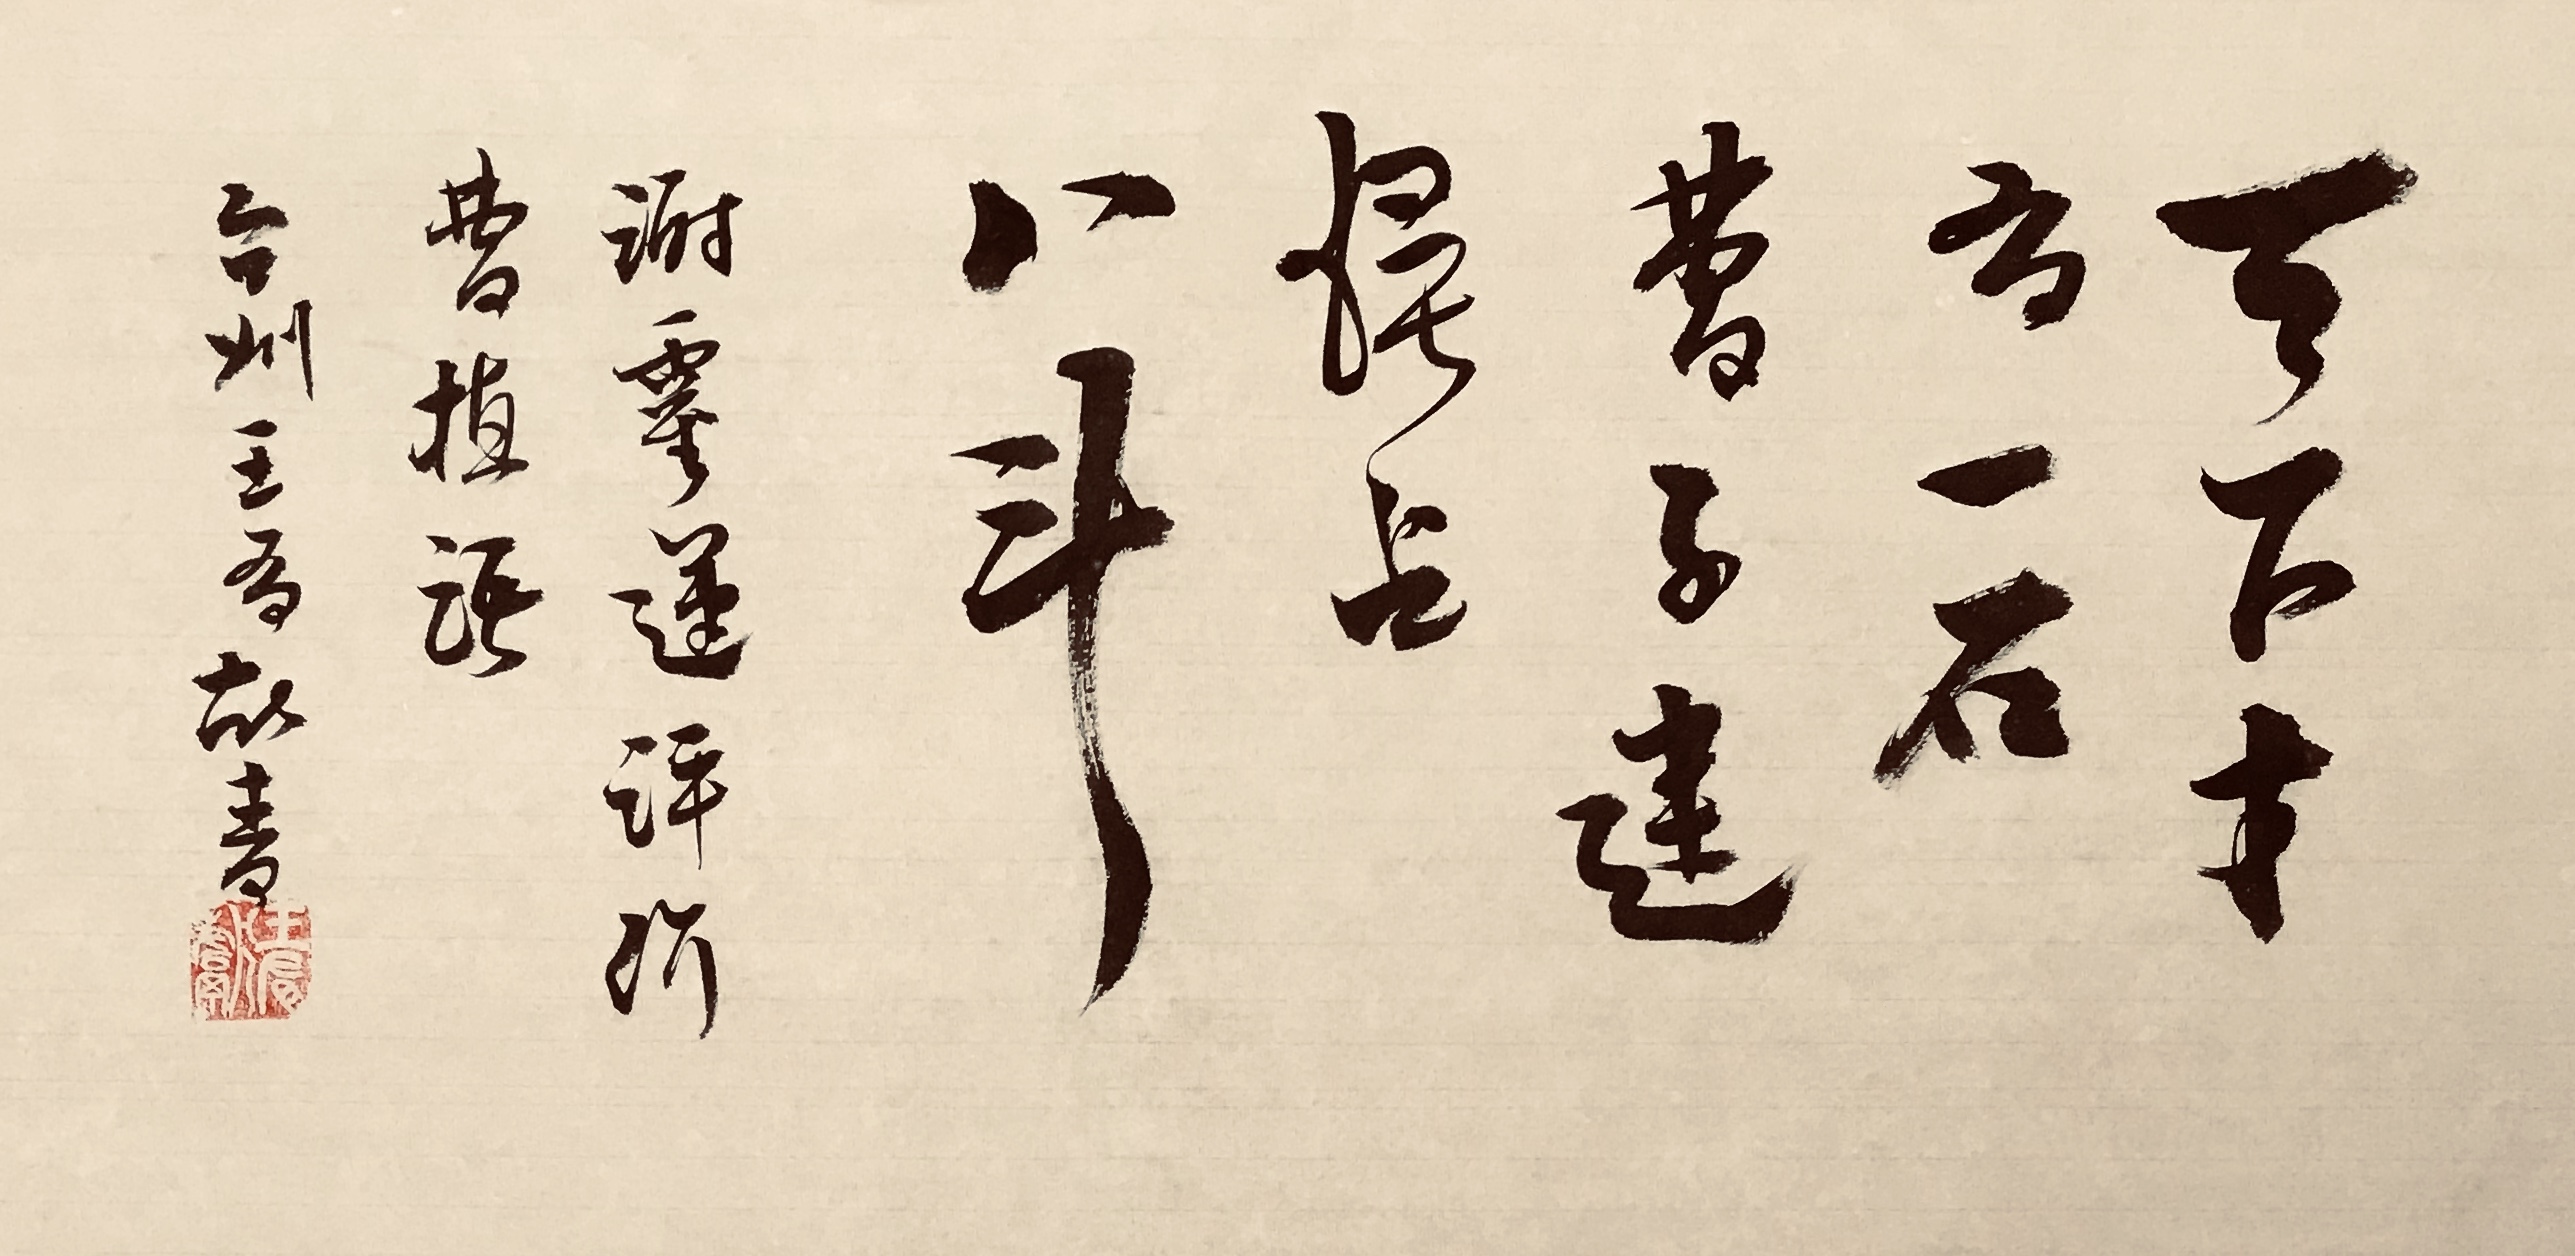 天下才
有一石
曹子建
獨占
八斗
謝靈運評所
曹植語
台州王有敬書